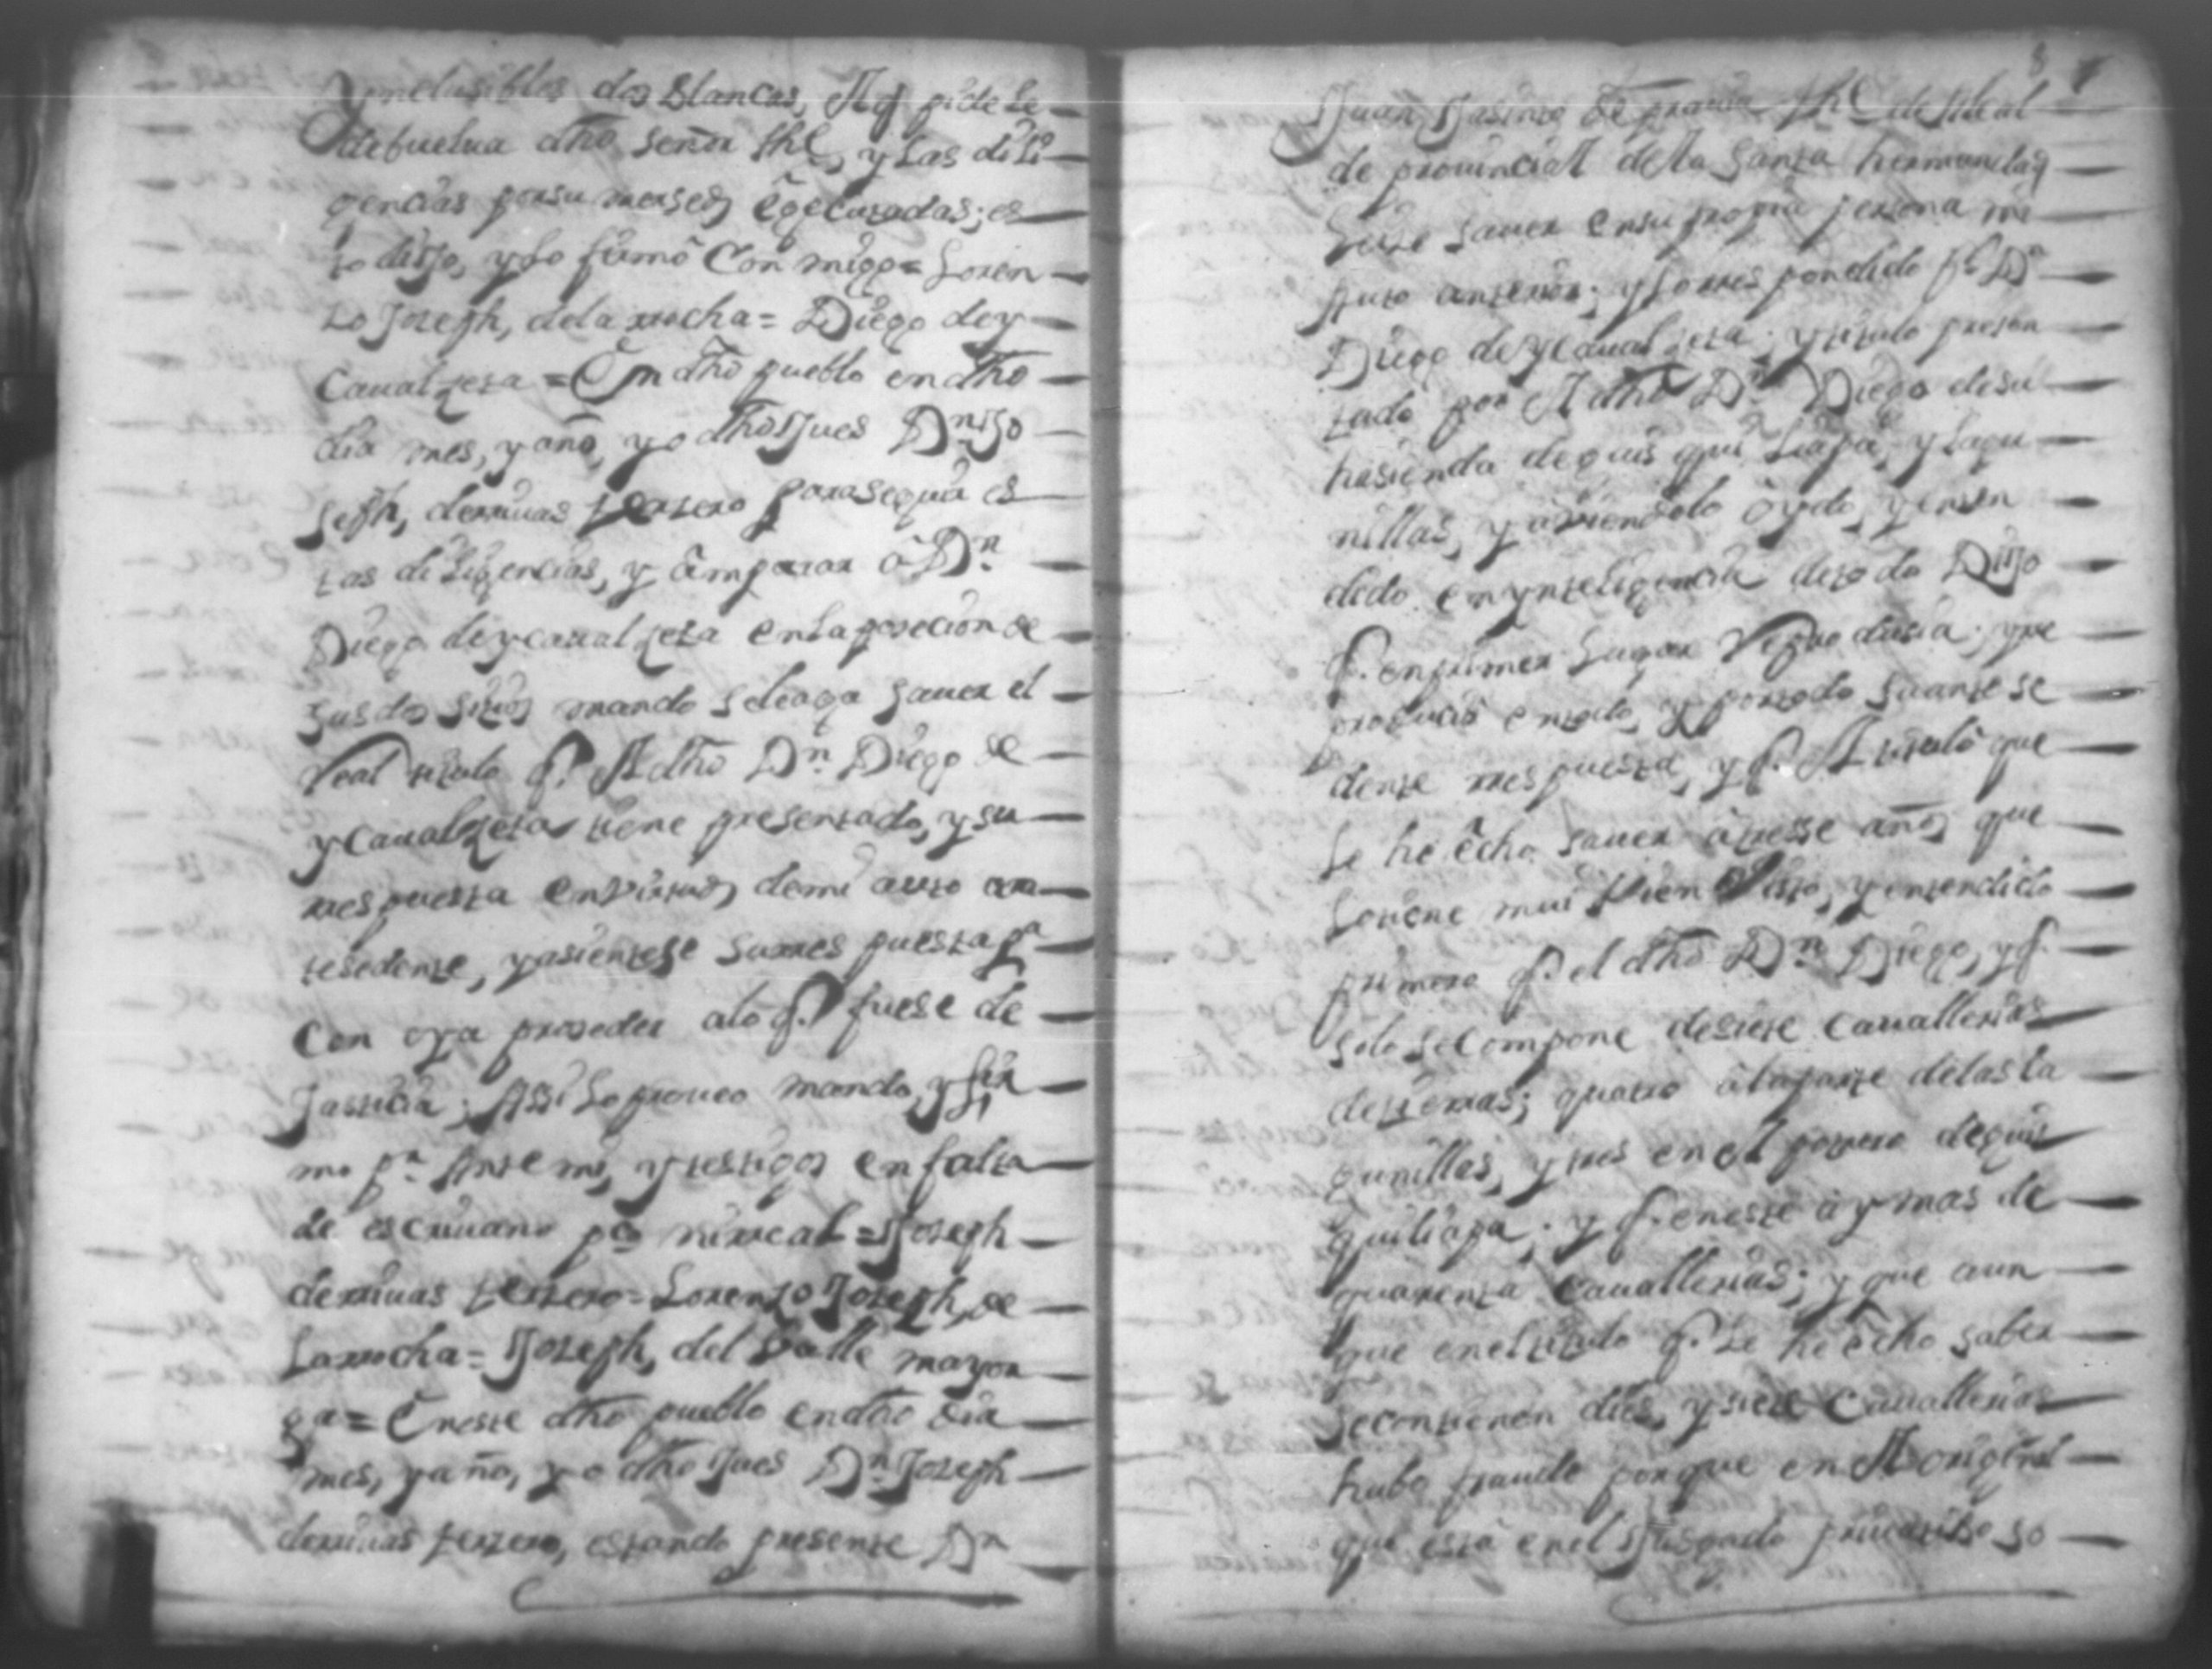 ynclusibles dos blancas, El q̃ pide se
debuelua dho señor the, y las dili
gencias por su mersed, egecutadas; es
to dijo, y lo firmó Con migo = Loren
zo Joseph, de la rrocha = Diego de y
Caualzeta = En dho pueblo en dho
dia mes, y año, yo dho Jues Dn Jo
seph, de rriuas terzero para seguir es
tas diligencias, y amparar à Dn
Diego de ycaualzeta en la posecion de
sus dos sitios mando se le aga sauer el
Real titulo q. El dho Dn Diego de
ycaualzeta tiene presentado, y su
rrespuesta en virtud, de mi auto an
tesedente, y asientese su rrespuesta pa
Con eya proseder a lo q. fuese de
Justicia; Assi lo proueo mando, y fir
mo pr Ante mi, y testigos en falta
de escriuano pco ni rreal = Joseph
de rriuas terzero = Lorenzo Joseph, de
Larrocha = Joseph, del Valle mayor
ga = En este dho pueblo en dho dia
mes, y año, yo dho Jues Dn Joseph
de rriuas terzero, estando presente Dn
8
Juan Jasinto de the del Real
de prouincial de la Santa hermandad
hise sauer en su propia persona mi
Auto anterior; y lo rrespondido pr Dn
Diego de ycaualzeta; y titulo presen
tado por El dho Dn Diego de su
hasienda de quis qui liapa, y lagu
nillas, y auiendolo oydo, y enten
dido en ynteligencia de todo Dijo
q. en primer lugar Reproducia; y re
produsio en todo, y por todo su ante se
dente rrespuesta, y q. El titulo que
se he echo sauer à trese años que
lo tiene mui bien Visto, y entendido
primero q. el dho Dn Diego, y q.
solo se Compone de siete Cauallerias
de tierras; quatro à la parte de las la
gunillas, y tres en el potrero de quis
quiliapa; y q. en este à y mas de
quarenta Cauallerias; y que aun
que en el titulo q. se he echo saber
se contienen dies, y siete Cauallerias
hubo fraude porque en El original
que està en el Jusgado priuatibo so